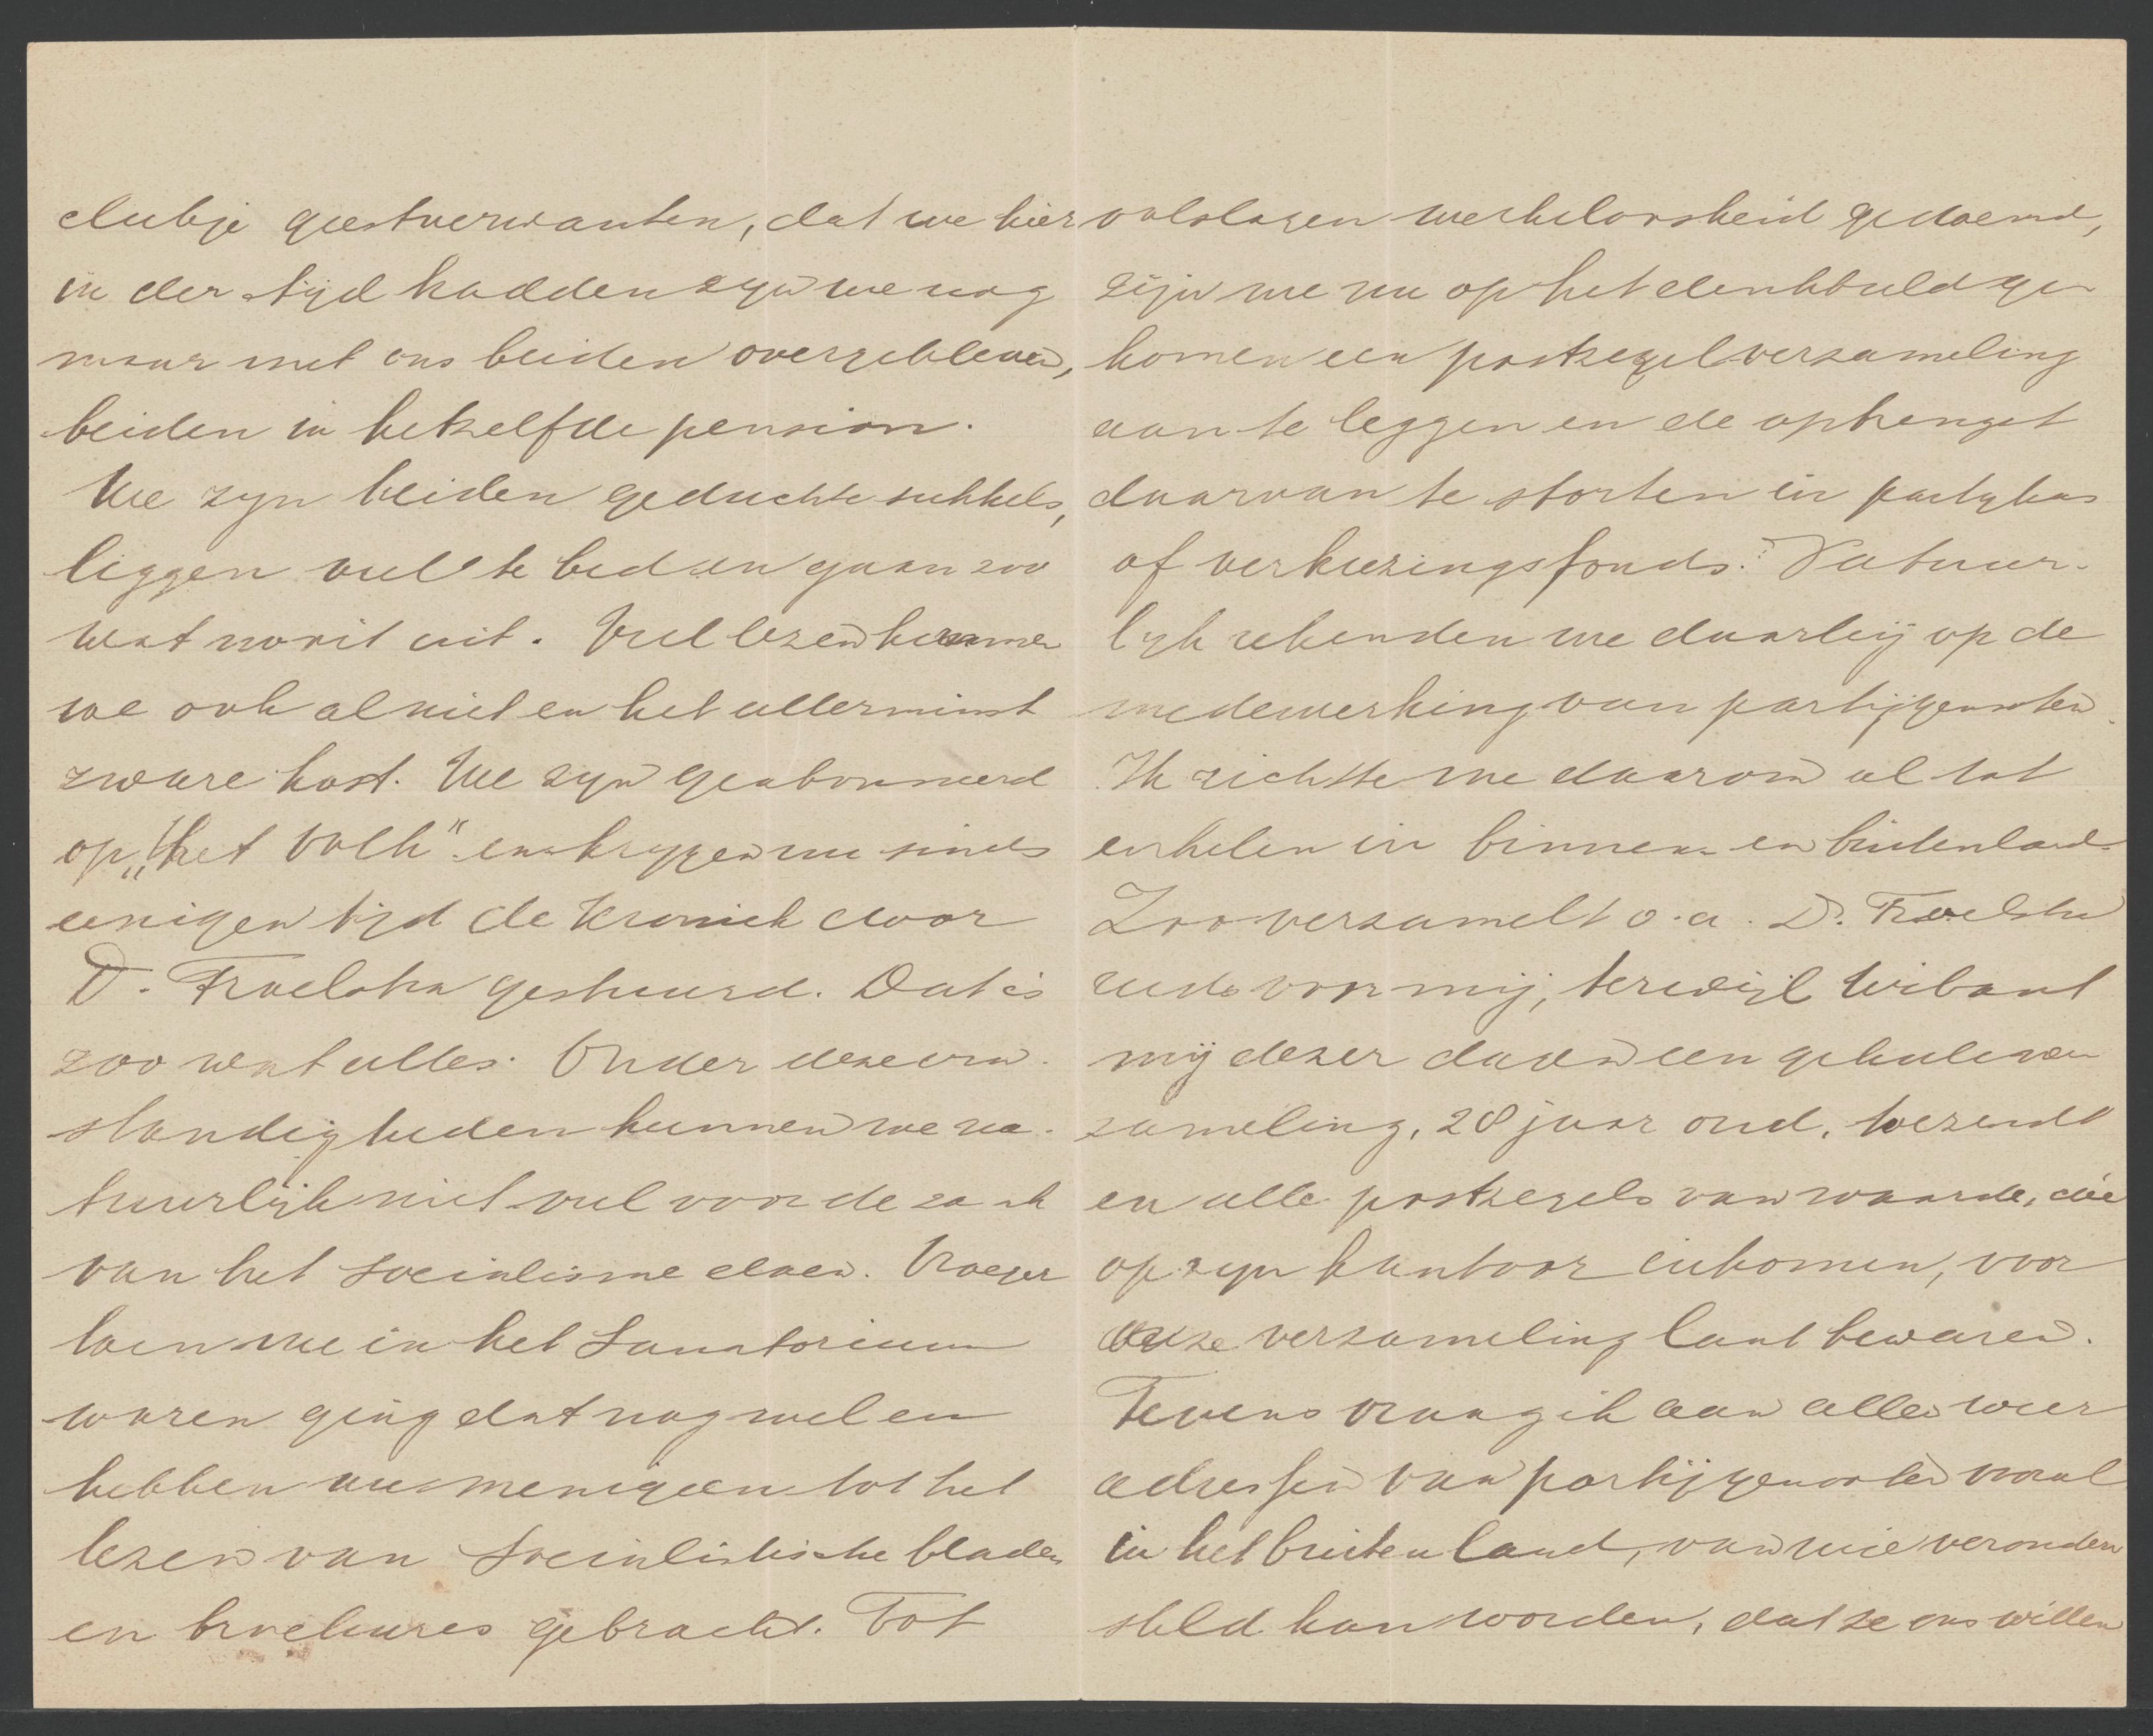 clubje geestverwanten, dat we hier
in der tijd hadden zyn we nog
maar met ons beiden overgebleven,
beiden in hetzelfde pension.
We zyn beiden geduchte sukkels,
liggen veel te bed en gaan zoo
wat nooit uit. Veel lezen kunnen
we ook al niet en het allerminst
zware kost. We zyn geabonneerd
op „het Volk" en krygen nu sinds
eenigen tijd de Kroniek door
D. Troelstra gestuurd. Dat is
zoo wat alles. Onder deze om-
standigheden kunnen we na-
tuurlijk niet veel voor de zaak
van het socialisme doen. Vroeger
toen we in het Sanatorium
waren ging dat nog wel en
hebben we menigeen tot het
lezen van Socialistische bladen
en brochures gebracht. Tot
volslagen werkeloosheid gedoemd,
zijn we nu op het denkbeeld ge-
komen een postzegelverzameling
aan te leggen en de opbrengst
daarvan te storten in partykas
of verkiezingsfonds. Natuur-
lyk rekenden we daarbij op de
medewerking van partijgenooten.
Ik richtte me daarom al tot
enkelen in binnen- en buitenland.
Zoo verzamelt o.a. D. Troelstra
reeds voor mij, terwijl Wibaut
mij dezer dagen een geheele ver
zameling, 28 jaar oud, toezendt
en alle postzegels van waarde, die
op zyn kantoor inkomen, voor
onze verzameling laat bewaren.
Tevens vraag ik aan allen weer
adressen van partijgenooten vooral
in het buitenland, van wie veronder
steld kan worden, dat ze ons willen